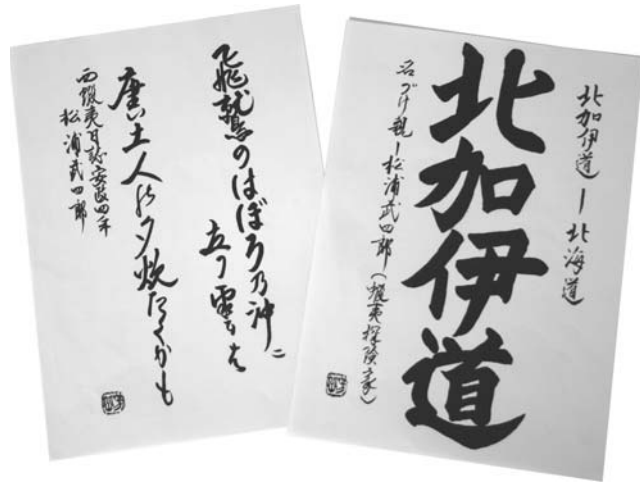 北加伊道ー北海道
北加伊道
名づけ親ー松浦武四郎(蝦夷探険家)
飛鷲のはぼろ乃沖に
立つ雲
唐い土人の夕炊たくかも
西蝦夷日誌安政四年
松浦武四郎